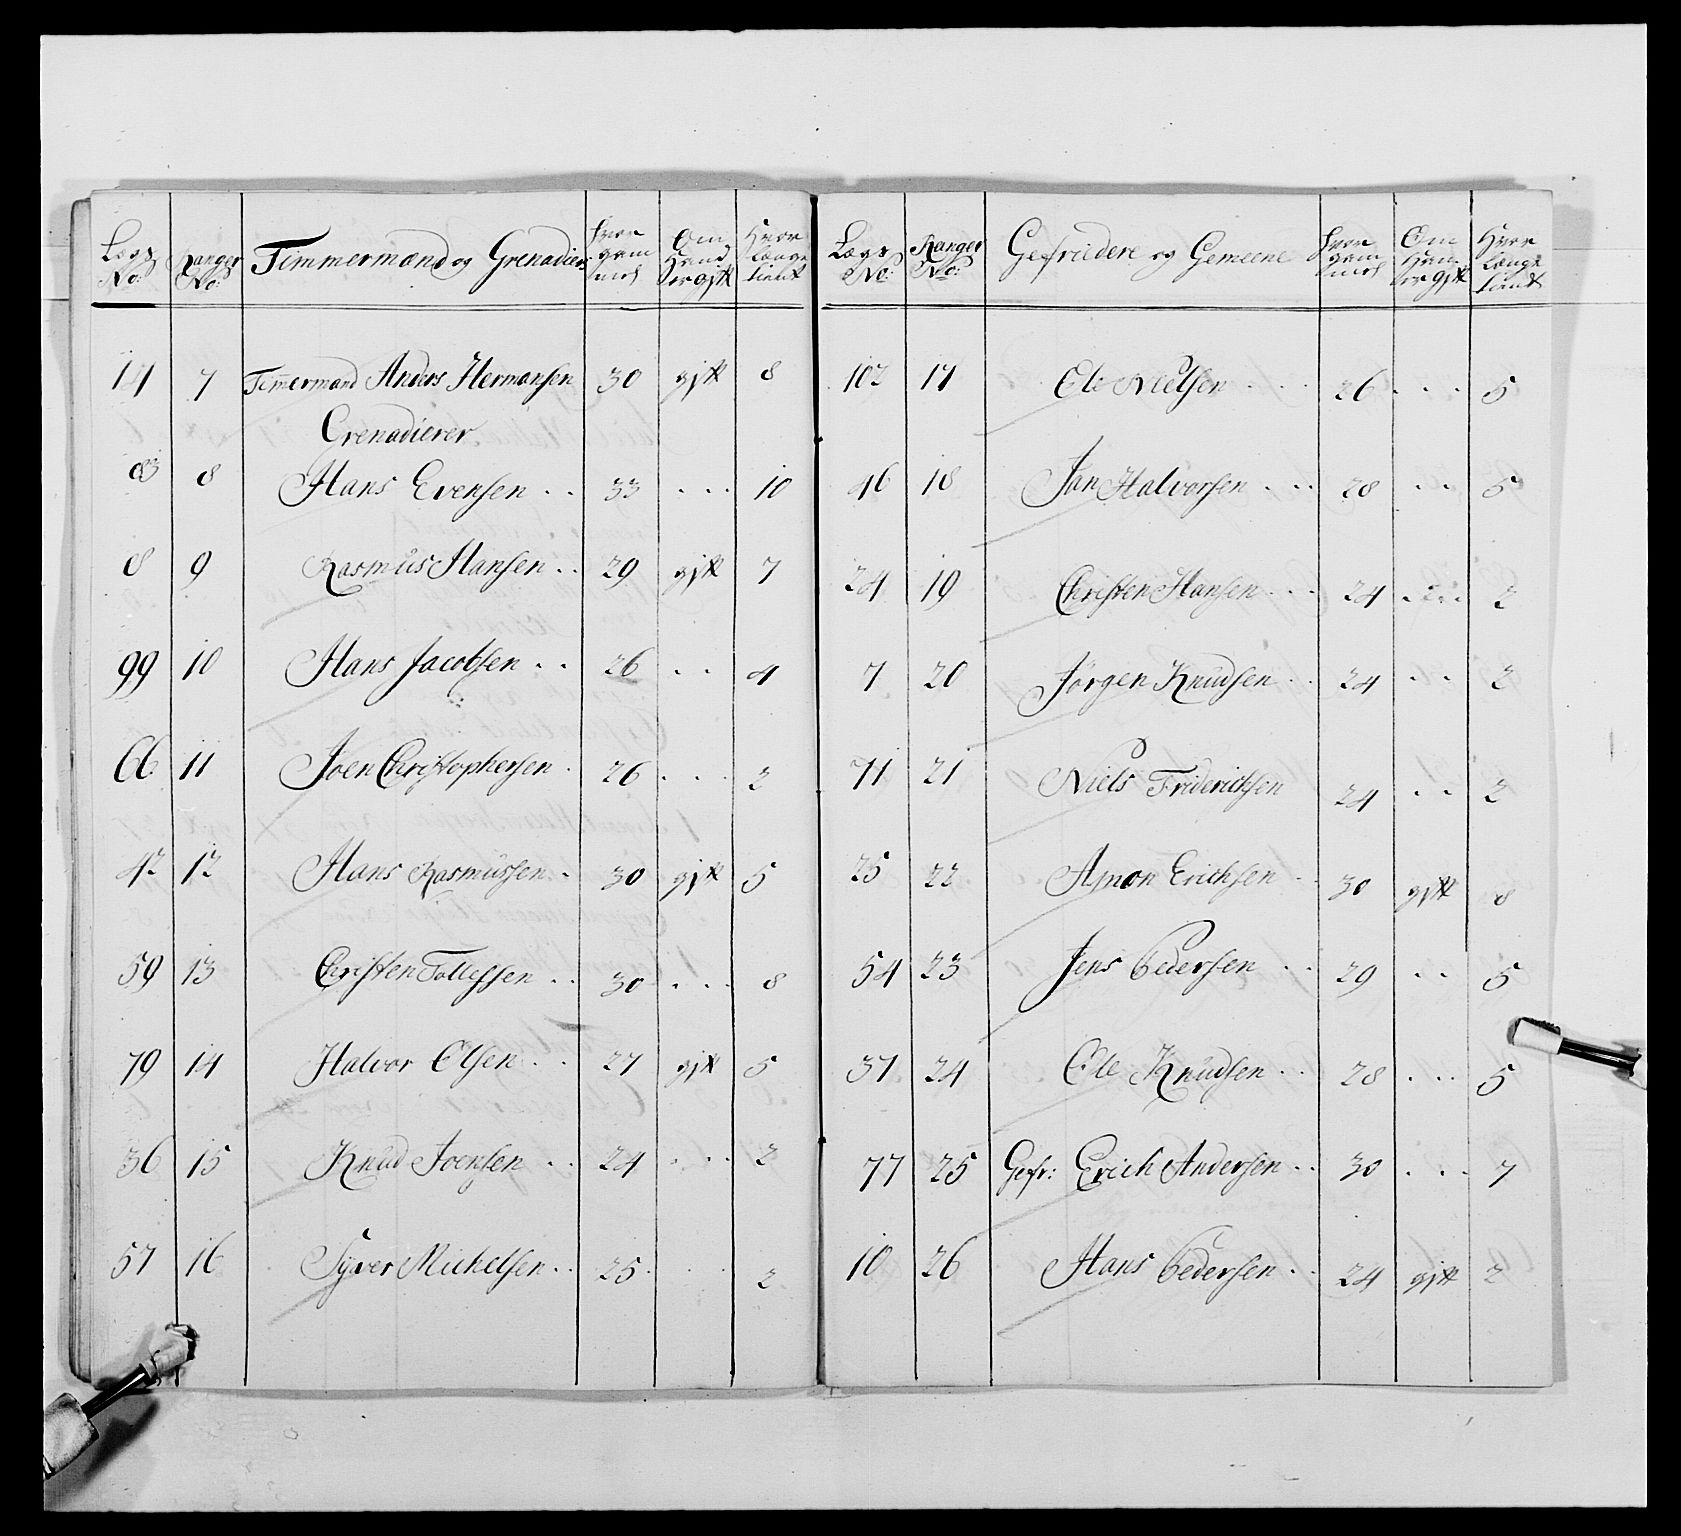 Lægs No: Ranger No: Timmermænd og Grenadiers Hvor gam̄el Om Hand er gift Hvor Længe tient
14 7 Tim̄ermand Anders Hermansen 30 gift 8
Grenadierer
83 8 Hans Evensen . . 33 . . . 10
8 9 Rasmus Hansen . . 29 gift 7
99 10 Hans Jacobsen . . 26 . . 4
66 11 Joen Christophersen . 26 . . . 2
42 12 Hans Rasmussen . 30 gift 5
59 13 Christen Tollefsen . . 30 . . . 8
79 14 Halvor Olsen . . 27 gift 5
36 15 Knud Joensen . . 24 . . . 2
57 16 Syver Michelsen . . 25 . . . 2
Lægs No: Ranger No: Gefriedere og Gemeene Hvor gam̄el Om Han er gift Hvor Længe tient
102 17 Ole Nielsen . . . 26 . . . 5
46 18 Jan Halvorsen . . . 28 . . 5
24 19 Christen Hansen . . . 24 . . . 2
7 20 Jörgen Knudsen . . 24 . . 2
71 21 Niels Friderichsen 24 . . 2
25 22 Amon Erichsen . . 30 gift 8
54 23 Jens Pedersen . . 29 . . 5
37 24 Ole Knudsen . . 28 . . . 5
77 25 Gefr: Erich Andersen . . 30 . . . 7
10 26 Hans Pedersen . . 24 gift 2